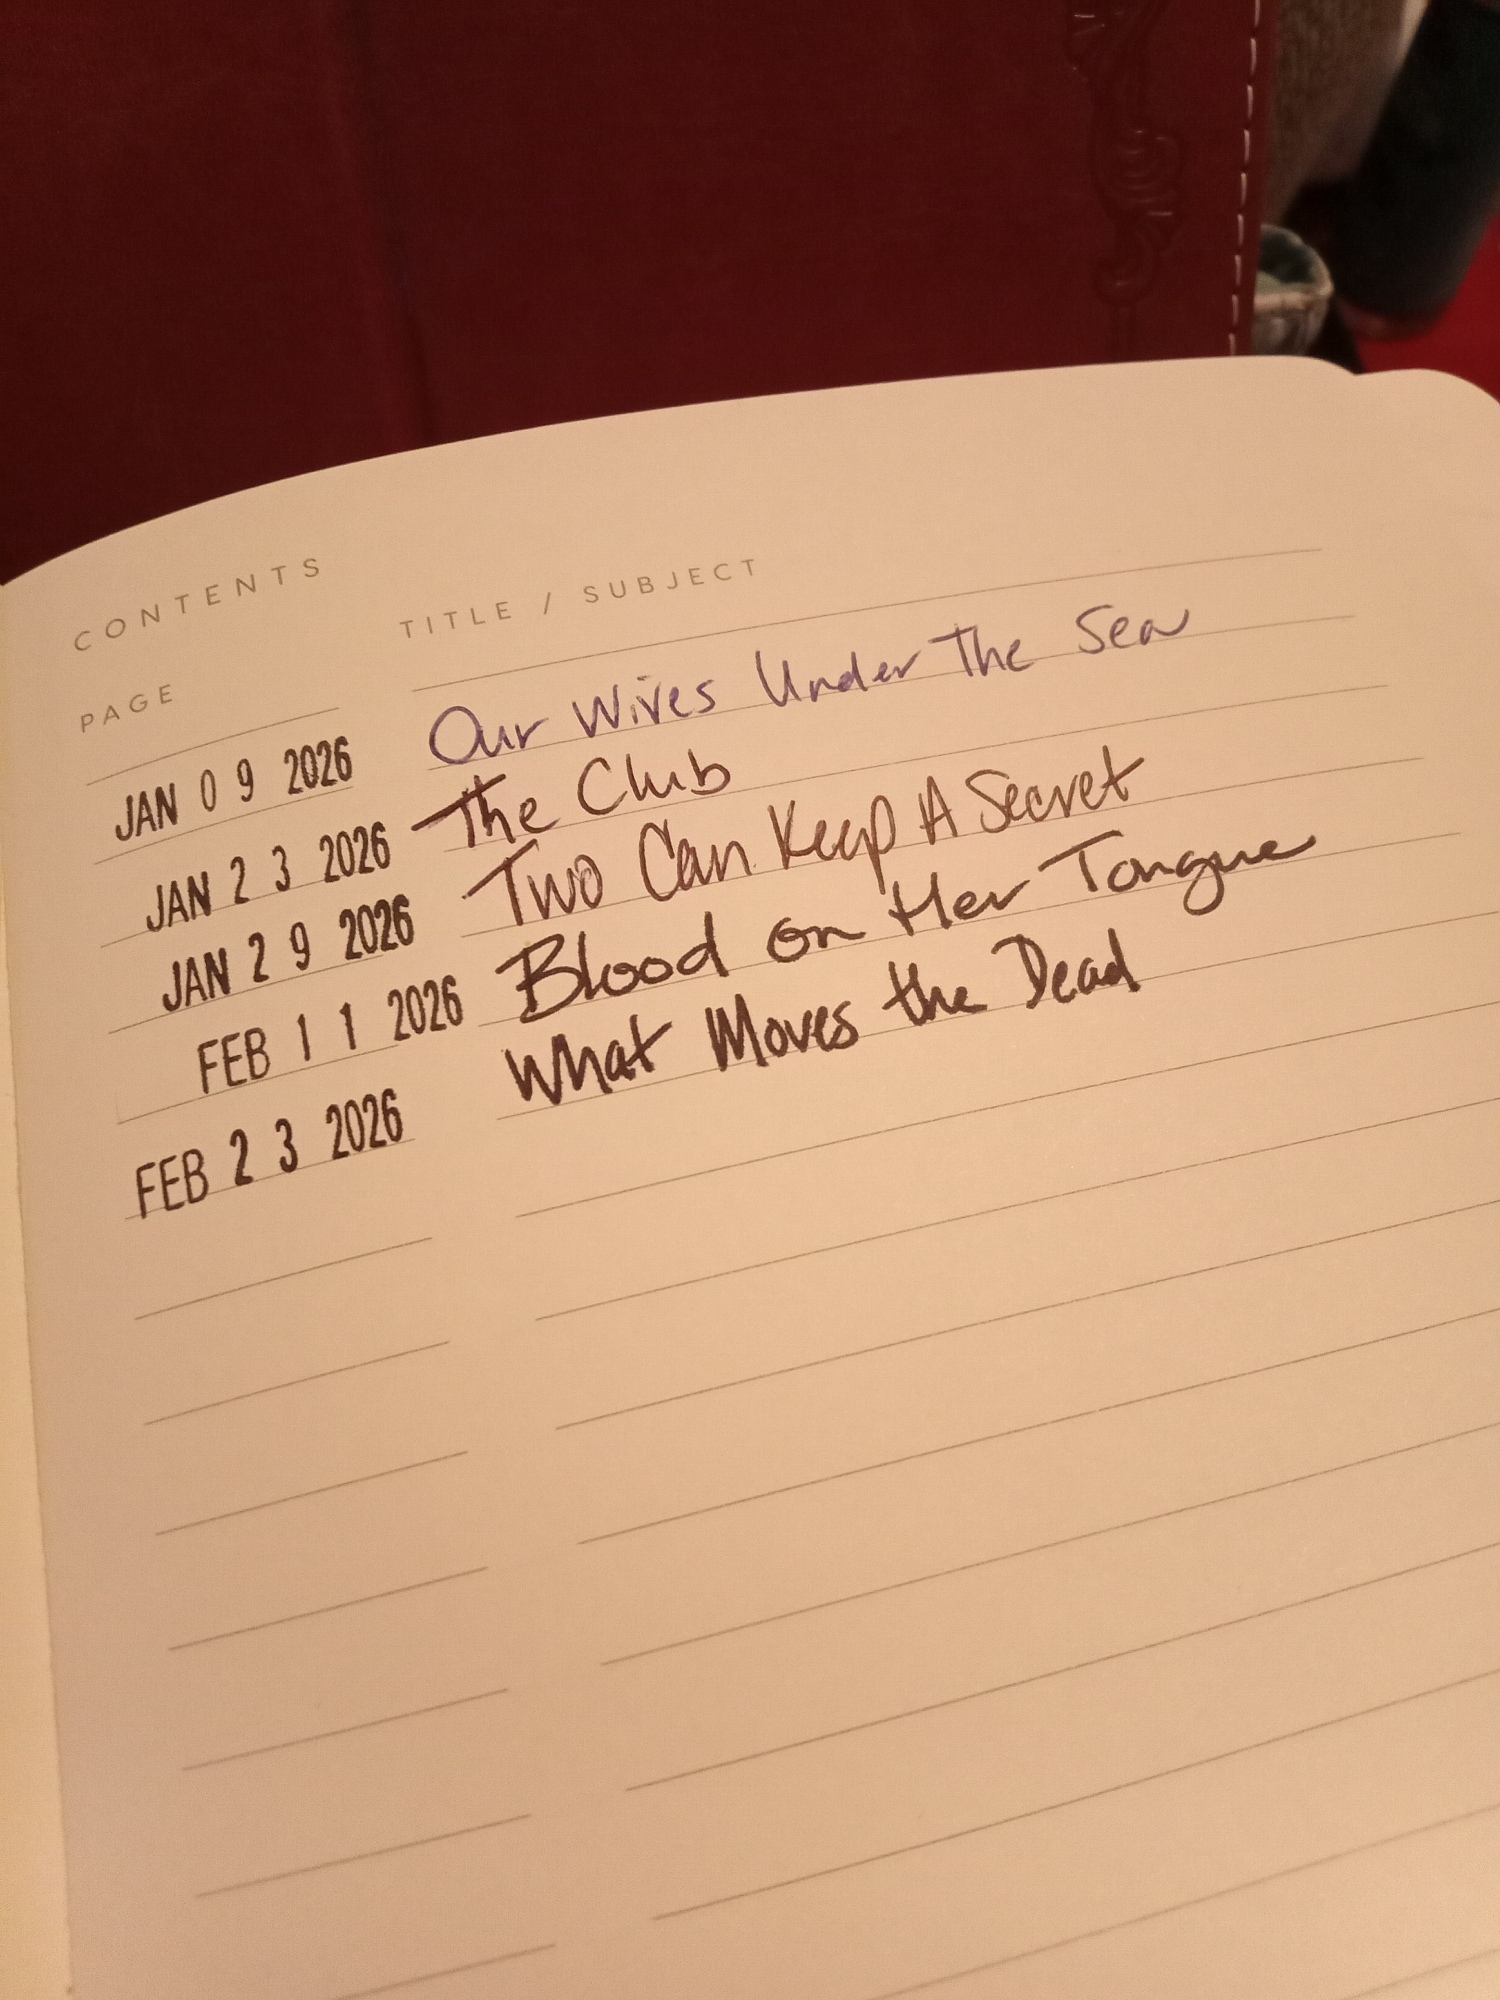 CONTENTS
PAGE TITLE / SUBJECT
JAN 09 2026 Our Wives Under The Sea
JAN 23 2026 The Club
JAN 29 2026 Two Can Keep A Secret
FEB 11 2026 Blood on Her Tongue
FEB 23 2026 What Moves the Dead